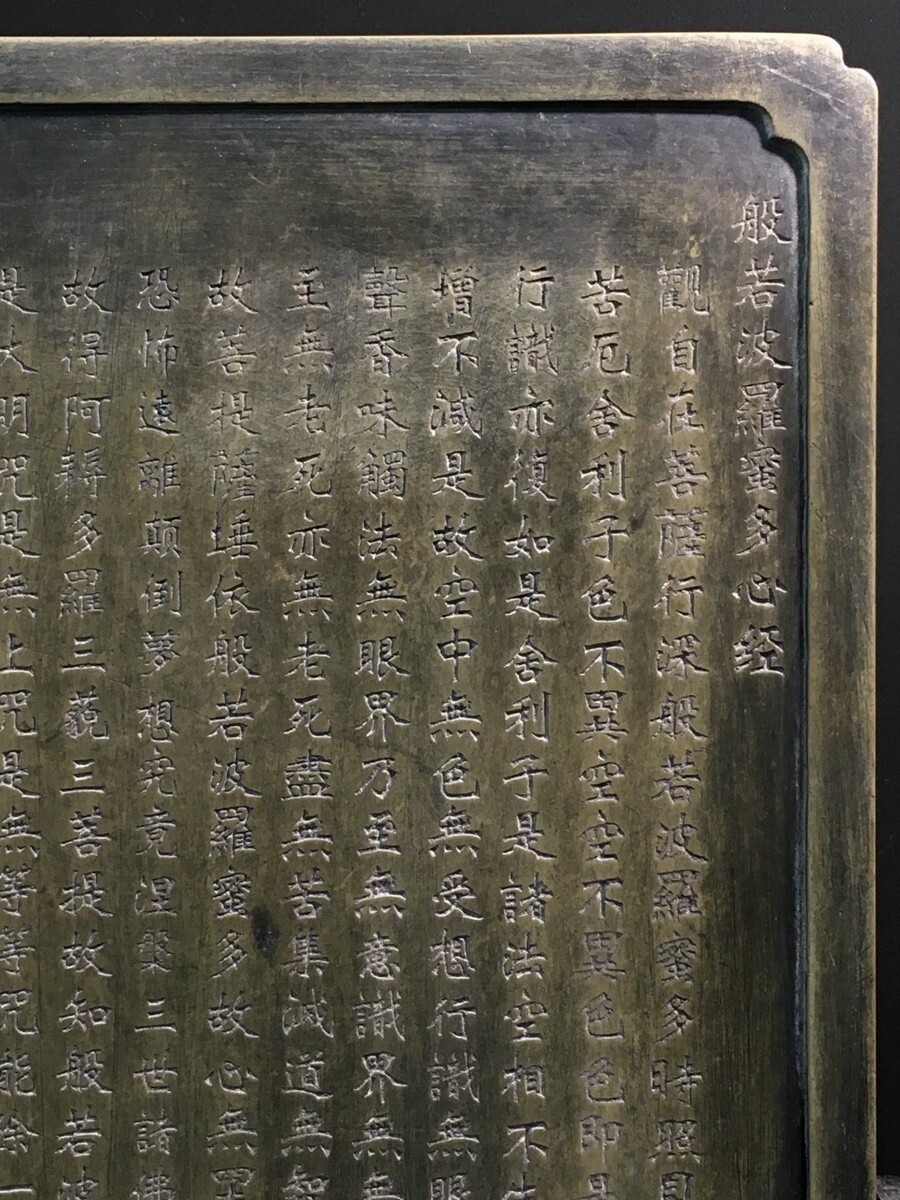 般若波羅蜜多心経
觀自在菩薩行深般若波羅蜜多時照見
苦厄舍利子色不異空空不異色色即是
行識亦復如是舍利子是諸法空相不生
增不減是故空中無色無受想行識無眼
聲香味觸法無眼界乃至無意識界無無
至無老死亦無老死盡無苦集滅道無智
故菩提薩埵依般若波羅蜜多故心無罣
恐怖遠離顛倒夢想究竟涅槃三世諸佛
故得阿耨多羅三藐三菩提故知般若波
是大明咒是無上咒是無等等咒能除一